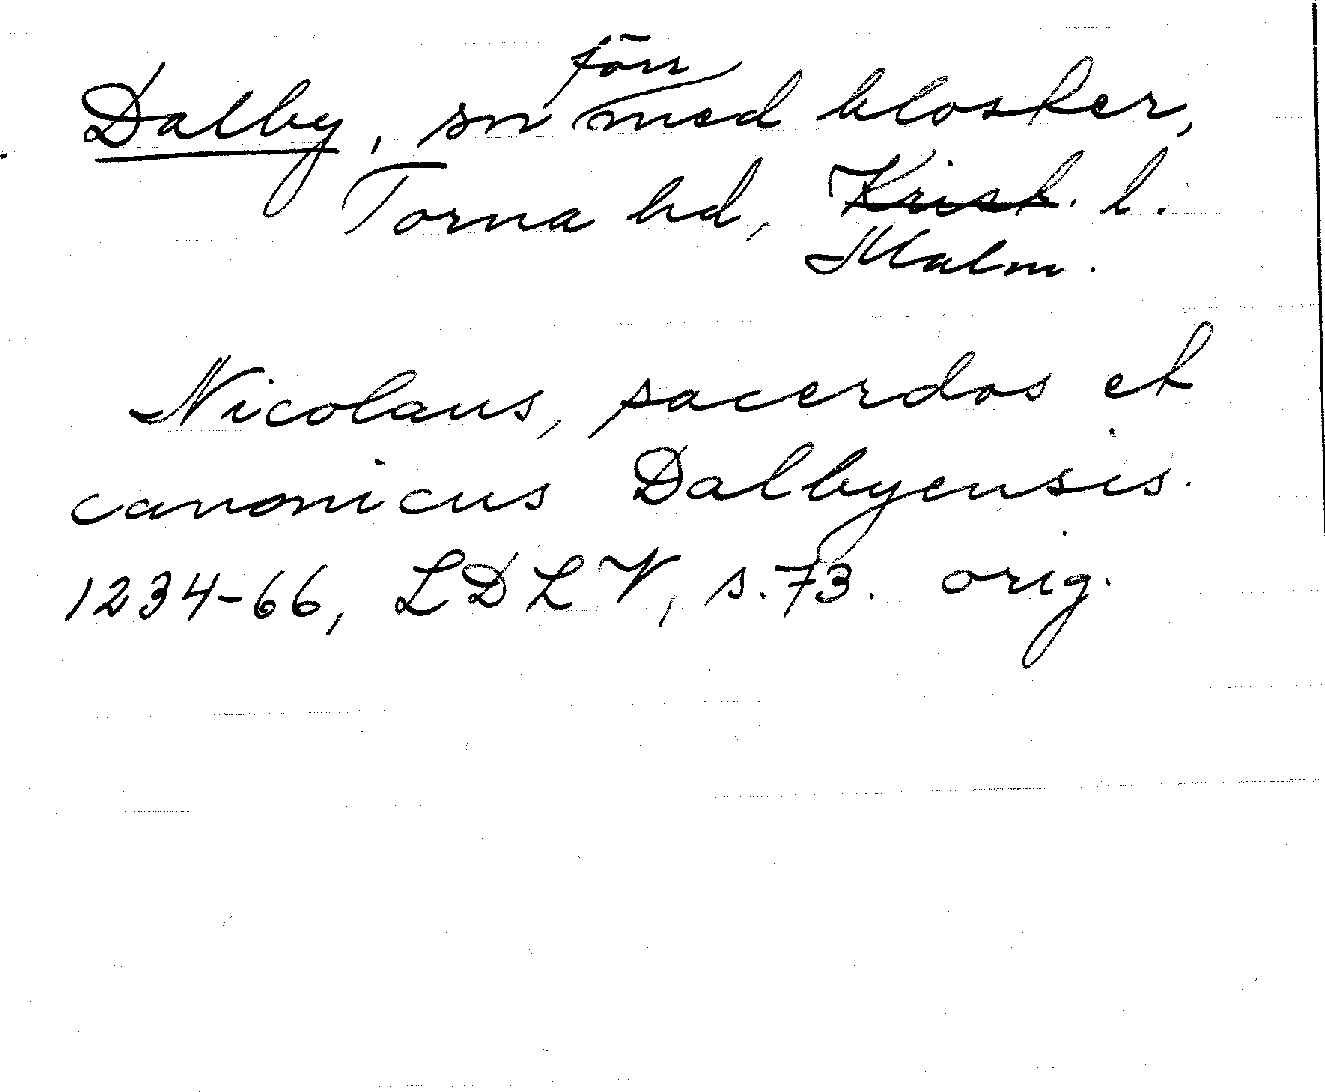 förr
Dalby, sn med kloster,
Torna hd, Krist. l.
Malm.
Nicolaus, sacerdos et
canonicus Dalbyensis.
1234-66, LDLV, s. 73. orig.